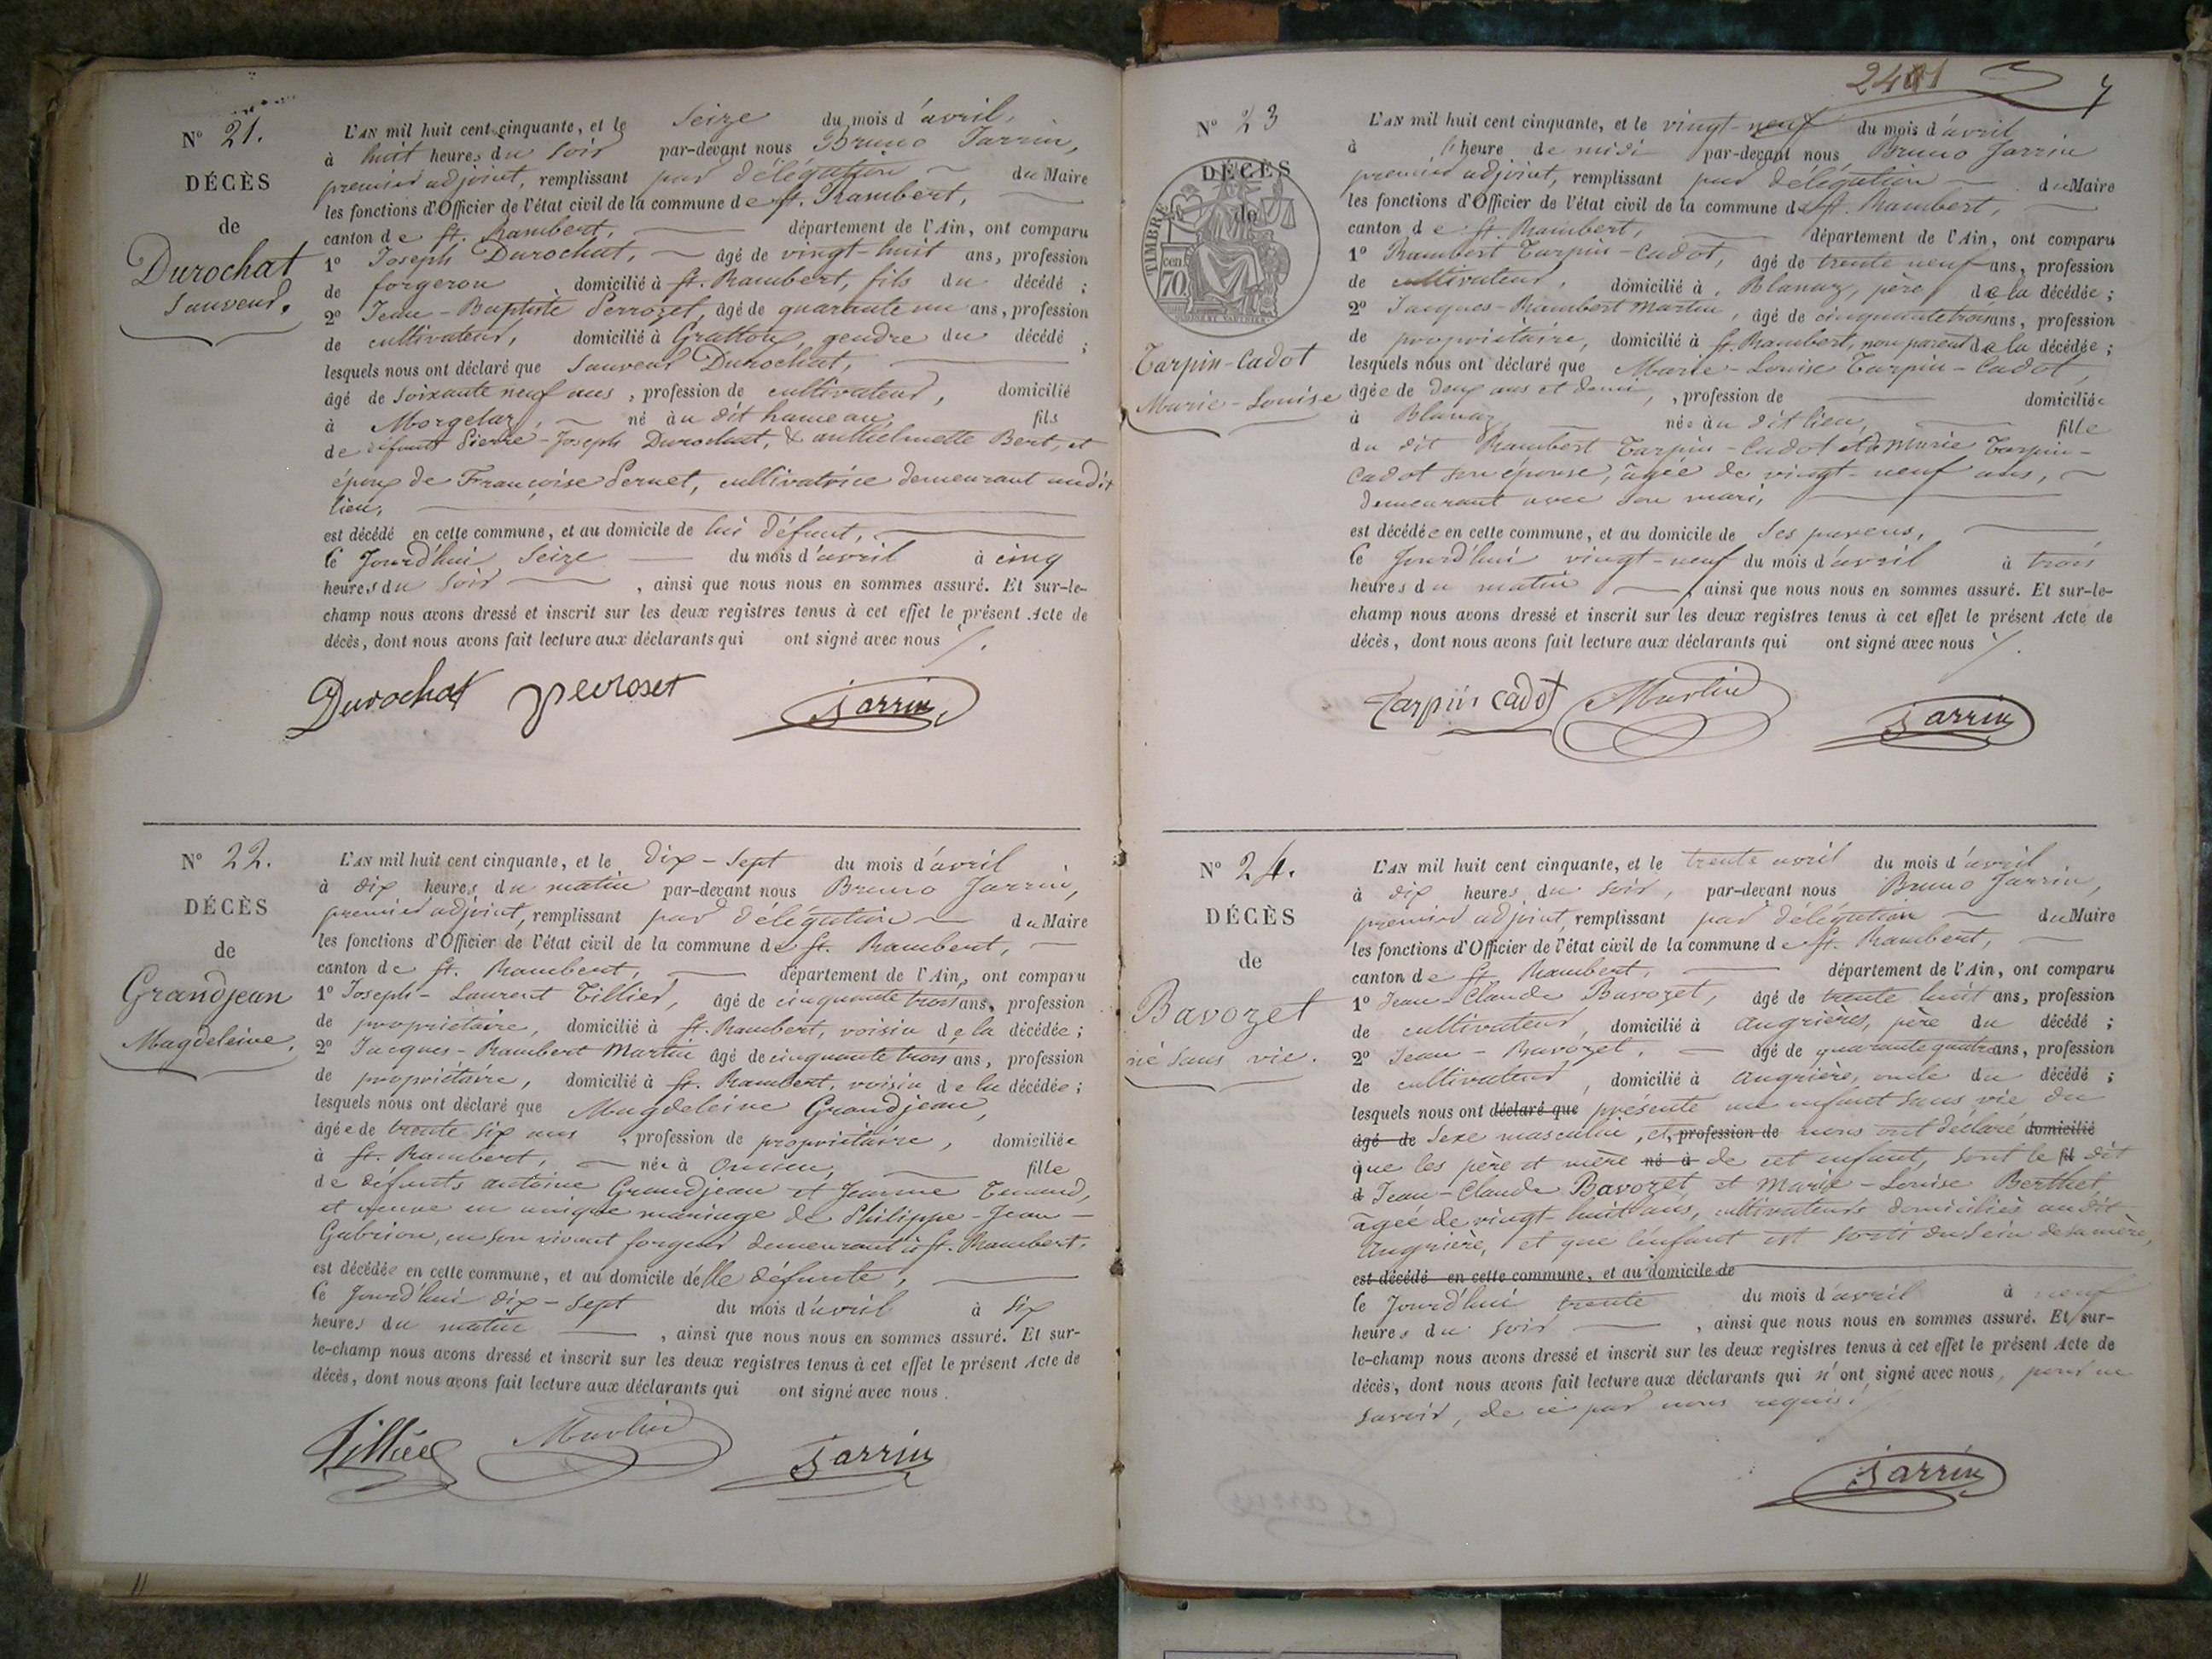 N° 21.
DÉCÈS
de
Durochat
Sauveur.
L'AN mil huit cent cinquante, et le Seize du mois d'avril,
à huit heures du soir par-devant nous Bruno Jarrin,
premier adjoint, remplissant par délégation du Maire
les fonctions d'Officier de l'état civil de la commune de St. Rambert,
canton de St. Rambert, département de l'Ain, ont comparu
1° Joseph Durochat, âgé de vingt-huit ans, profession
de forgeron domicilié à St. Rambert, fils du décédé ;
2° Jean-Baptiste Perrozet, âgé de quarante un ans, profession
de cultivateur, domicilié à Grattoux, gendre du décédé ;
lesquels nous ont déclaré que Sauveur Durochat,
âgé de soixante neuf ans, profession de cultivateur, domicilié
à Morgelaz, né au dit hameau, fils
de défunts Pierre-Joseph Durochat, & anthelmette Bert, et
époux de Françoise Pernet, cultivatrice demeurant audit
lieu,
est décédé en cette commune, et au domicile de lui défunt,
le Jourd'hui Seize du mois d'avril à cinq
heures du soir, ainsi que nous nous en sommes assuré. Et sur-le-
champ nous avons dressé et inscrit sur les deux registres tenus à cet effet le présent Acte de
décès, dont nous avons fait lecture aux déclarants qui ont signé avec nous /.
Durochat perroset Jarrin
N° 22.
DÉCÈS
de
Grandjean
Magdeleine.
L'AN mil huit cent cinquante, et le Dix-Sept du mois d'avril
à dix heures du matin par-devant nous Bruno Jarrin,
premier adjoint, remplissant par délégation du Maire
les fonctions d'Officier de l'état civil de la commune de St. Rambert,
canton de St. Rambert, département de l'Ain, ont comparu
1° Joseph-Laurent Tillier, âgé de cinquante trois ans, profession
de propriétaire, domicilié à St. Rambert, voisin de la décédée ;
2° Jacques-Rambert Martin âgé de cinquante trois ans, profession
de propriétaire, domicilié à St. Rambert, voisin de la décédée ;
lesquels nous ont déclaré que Magdeleine Grandjean,
âgée de trente six ans, profession de propriétaire, domiciliée
à St. Rambert, née à Oncieu, fille
de défunts antoine Grandjean et Jeanne Tenand,
et veuve en unique mariage de Philippe-Jean-
Gabrion, en son vivant forgeur demeurant à St. Rambert,
est décédée en cette commune, et au domicile d'elle défunte,
le Jourd'hui dix-Sept du mois d'avril à Six
heures du matin, ainsi que nous nous en sommes assuré. Et sur-
le-champ nous avons dressé et inscrit sur les deux registres tenus à cet effet le présent Acte de
décès, dont nous avons fait lecture aux déclarants qui ont signé avec nous.
Tillier Martin Jarrin
2401 7
N° 23
DÉCÈS
de
TIMBRE
cen
70
Tarpin-Cadot
Marie-Louise
L'AN mil huit cent cinquante, et le vingt-neuf du mois d'avril
à l'heure de midi par-devant nous Bruno Jarrin
premier adjoint, remplissant par délégation du Maire
les fonctions d'Officier de l'état civil de la commune de St. Rambert,
canton de St. Rambert, département de l'Ain, ont comparu
1° Rambert Tarpin-Cadot, âgé de trente neuf ans, profession
de cultivateur, domicilié à Blanaz, père de la décédée ;
2° Jacques-Rambert Martin, âgé de cinquante trois ans, profession
de propriétaire, domicilié à St. Rambert, non parent de la décédée ;
lesquels nous ont déclaré que Marie-Louise Tarpin-Cadot,
âgée de deux ans et demi, profession de domiciliée
à Blanaz, née au dit lieu, fille
du dit Rambert Tarpin-Cadot et de Marie Tarpin-
Cadot son épouse, âgée de vingt-neuf ans,
demeurant avec son mari,
est décédée en cette commune, et au domicile de Ses parens,
le Jourd'hui vingt-neuf du mois d'avril à trois
heures du matin, ainsi que nous nous en sommes assuré. Et sur-le-
champ nous avons dressé et inscrit sur les deux registres tenus à cet effet le présent Acte de
décès, dont nous avons fait lecture aux déclarants qui ont signé avec nous /.
Tarpin cadot Martin Jarrin
N° 24.
DÉCÈS
de
Bavozet
né sans vie.
L'AN mil huit cent cinquante, et le trente avril du mois d'avril
à dix heures du soir, par-devant nous Bruno Jarrin,
premier adjoint, remplissant par délégation du Maire
les fonctions d'Officier de l'état civil de la commune de St. Rambert,
canton de St. Rambert, département de l'Ain, ont comparu
1° Jean-Claude Bavozet, âgé de trente huit ans, profession
de cultivateur, domicilié à Angrières, père du décédé ;
2° Jean-Bavozet, âgé de quarante quatre ans, profession
de cultivateur, domicilié à Angrière, oncle du décédé ;
lesquels nous ont déclaré que présenté un enfant sans vie du
âgé de Sexe masculin, et, profession de nous ont déclaré domicilié
que les père et mère né à de cet enfant, sont le fil dit
d Jean-Claude Bavozet et Marie-Louise Berthet
âgée de vingt-huit ans, cultivateurs domiciliés audit
Angrière, et que l'enfant est sorti du Sein de sa mère,
est décédé en cette commune, et au domicile de
le Jourd'hui trente du mois d'avril à neuf
heures du soir, ainsi que nous nous en sommes assuré. Et sur-
le-champ nous avons dressé et inscrit sur les deux registres tenus à cet effet le présent Acte de
décès, dont nous avons fait lecture aux déclarants qui n'ont signé avec nous, pour ne
savoir, de ce par nous requis.
Jarrin